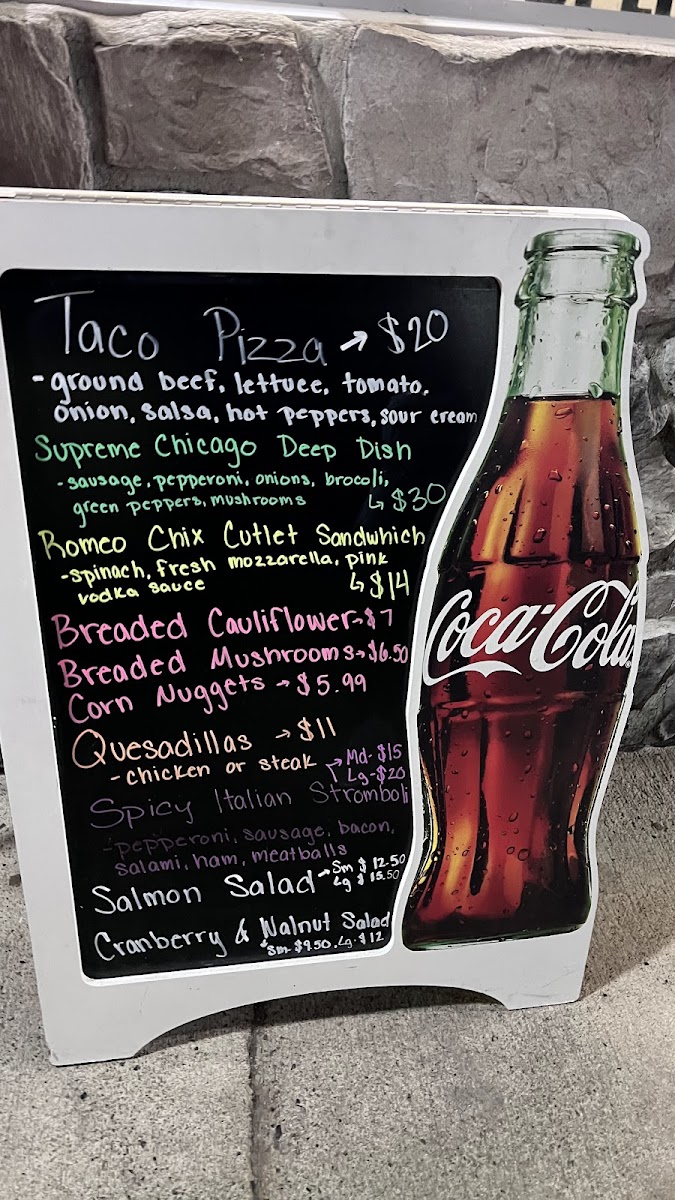 Taco Pizza → $20
- ground beef, lettuce, tomato,
onion, salsa, hot peppers, sour cream
Supreme Chicago Deep Dish
- sausage, pepperoni, onions, brocoli,
green peppers, mushrooms ↳ $30
Romeo Chix Cutlet Sandwhich
- spinach, fresh mozzarella, pink
vodka sauce ↳ $14
Breaded Cauliflower → $7
Breaded Mushrooms → $6.50
Corn Nuggets → $5.99
Quesadillas → $11
- chicken or steak
Md - $15
Lg - $20
Spicy Italian Stromboli
- pepperoni, sausage, bacon,
salami, ham, meatballs
Salmon Salad → Sm $12.50
Lg $15.50
Cranberry & Walnut Salad
Sm - $9.50, Lg - $12
Coca-Cola